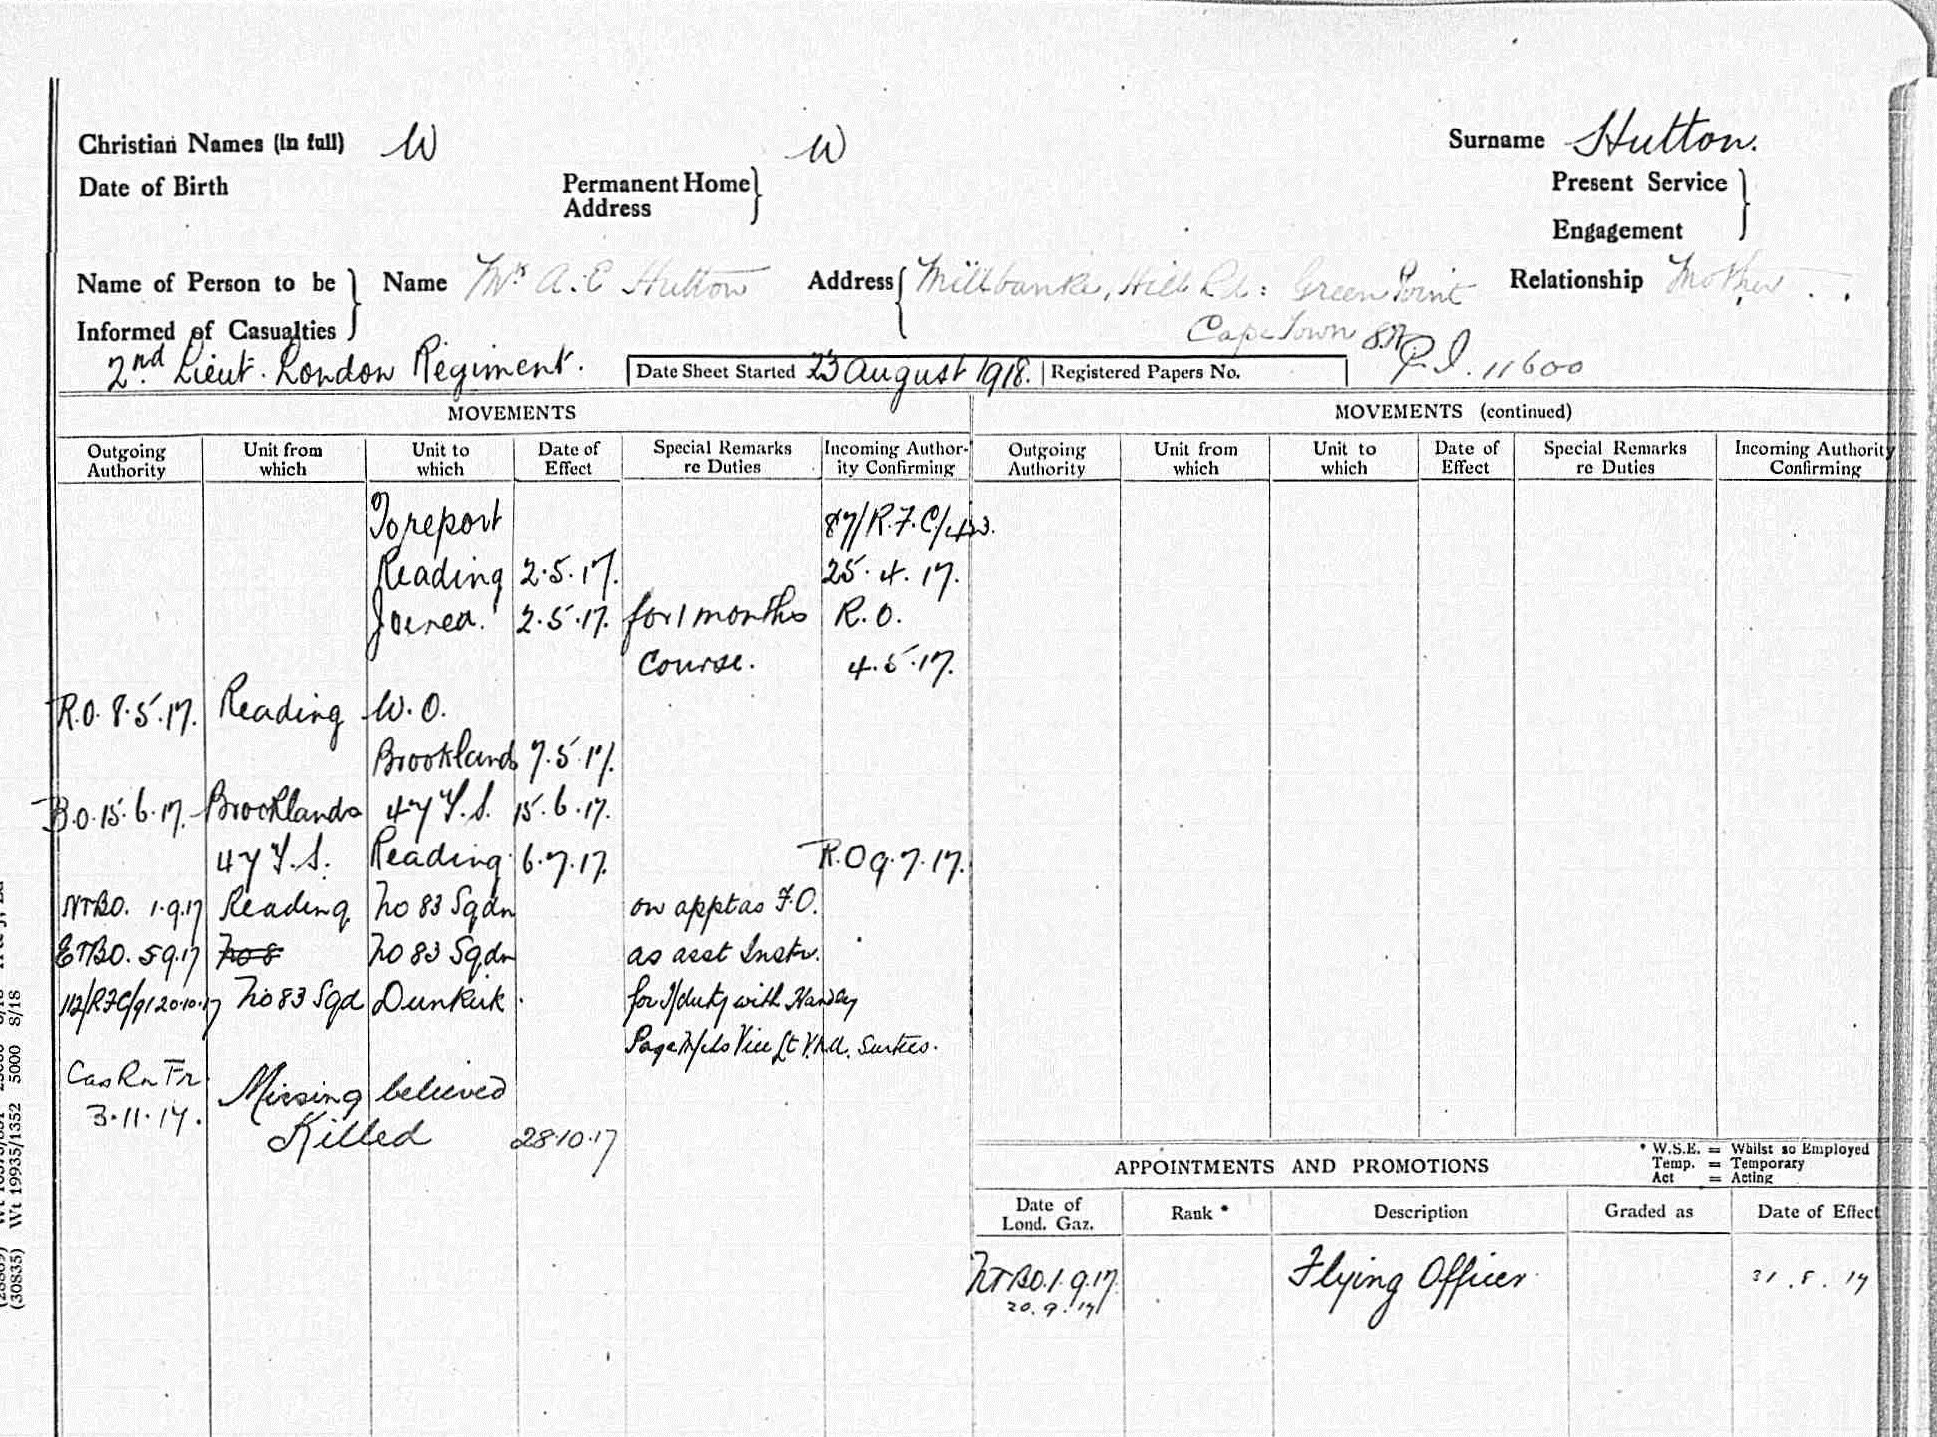 Christian Names (in full) W W Surname Hutton.
Date of Birth Permanent Home Address Present Service
Engagement
Name of Person to be Informed of Casualties Name Mrs A. E Hutton Address Millbanke, Hill Rd: Green Point Relationship Mother
Cape Town SA
2nd Lieut. London Regiment. Date Sheet Started 23 August 1918. Registered Papers No. P.I. 11600
MOVEMENTS MOVEMENTS (continued)
Outgoing Authority Unit from which Unit to which Date of Effect Special Remarks re Duties Incoming Authority Confirming Outgoing Authority Unit from which Unit to which Date of Effect Special Remarks re Duties Incoming Authority Confirming
To report 87/R.F.C/
Reading 2.5.17. 25.4.17.
Joined. 2.5.17. for 1 months R.O.
Course. 4.5.17.
R.O. 8.5.17. Reading W.O.
Brooklands 7.5.17.
B.O. 15.6.17. Brooklands 47 T.S. 15.6.17.
47 T.S. Reading 6.7.17. R.O 9.7.17.
NTBO. 1.9.17 Reading No 83 Sqdn on appt as F.O.
ETBO. 5.9.17 No 8 No 83 Sqdn as asst Instr.
112/RFC/91 20.10.17 No 83 Sqd Dunkirk. for T/duty with Handley
Page M/cs Vice Lt V.N. Surtees.
Cas Rn Fr. Missing believed
3.11.17. Killed 28.10.17
APPOINTMENTS AND PROMOTIONS
* W.S.E. = Whilst so Employed
Temp. = Temporary
Act = Acting
Date of Lond. Gaz. Rank * Description Graded as Date of Effect
NTBO. 1.9.17 Flying Officer 31.8.17
20.9.17
(30835) Wt 19935/1352 5000 8/18